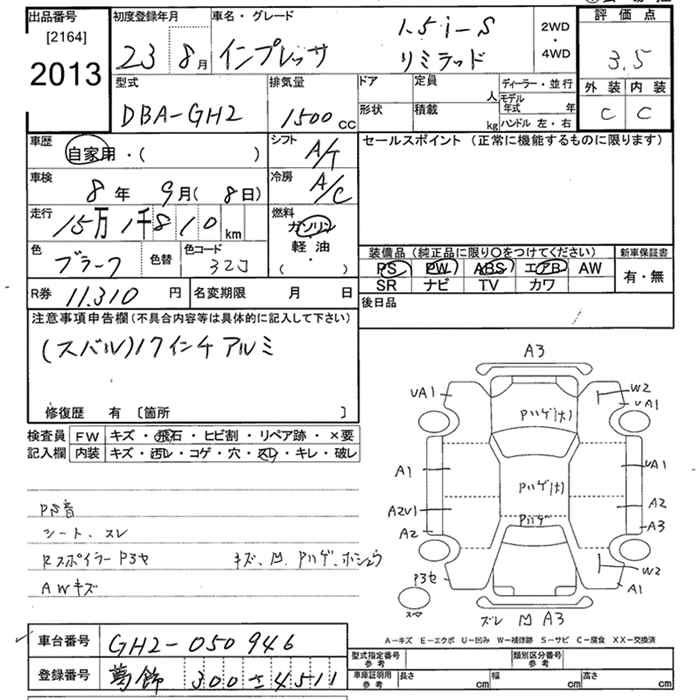 出品番号
[2164]
2013
初度登録年月
23 8月
車名・グレード
インプレッサ 1.5i-S リミテッド
2WD
・
4WD
評価点
3.5
外装 内装
C C
型式
DBA-GH2
排気量
1500cc
ドア
形状
定員 人
積載 kg
ディーラー・並行
モデル年式 年
ハンドル 左・右
車歴
自家用・( )
シフト
A/T
セールスポイント (正常に機能するものに限ります)
車検
8年 9月( 8日)
冷房
A/C
走行
15万1千810km
燃料
ガソリン
軽油
・
( )
色
ブラーク
色替
色コード
32J
装備品 (純正品に限り○をつけてください)
PS PW ABS エアB AW
SR ナビ TV カワ
新車保証書
有・無
R券 11,310 円
名変期限 月 日
後日品
注意事項申告欄(不具合内容等は具体的に記入して下さい)
(スバル)17インチアルミ
修復歴 有 〔箇所 〕
検査員記入欄
FW キズ・飛石・ヒビ割・リペア跡・×要
内装 キズ・汚レ・コゲ・穴・スレ・キレ・破レ
シート、スレ
Rスポイラー P3セ キズ、凹、Pハゲ、ホシュウ
AWキズ
A3
UA1
W2
UA1
Pハゲ(大)
A1
UA1
Pハゲ(大)
A2U1
A2
Pハゲ
A2
A3
P3セ
W2
A1
スペア
ズレ 凹 A3
A-キズ E-エクボ U-凹み W-補修跡 S-サビ C-腐食 XX-交換済
車台番号 GH2-050946
登録番号 葛飾 300 さ 4511
型式指定番号
参考
類別区分番号
参考
車庫証明用
参考
長さ cm
幅 cm
高さ cm